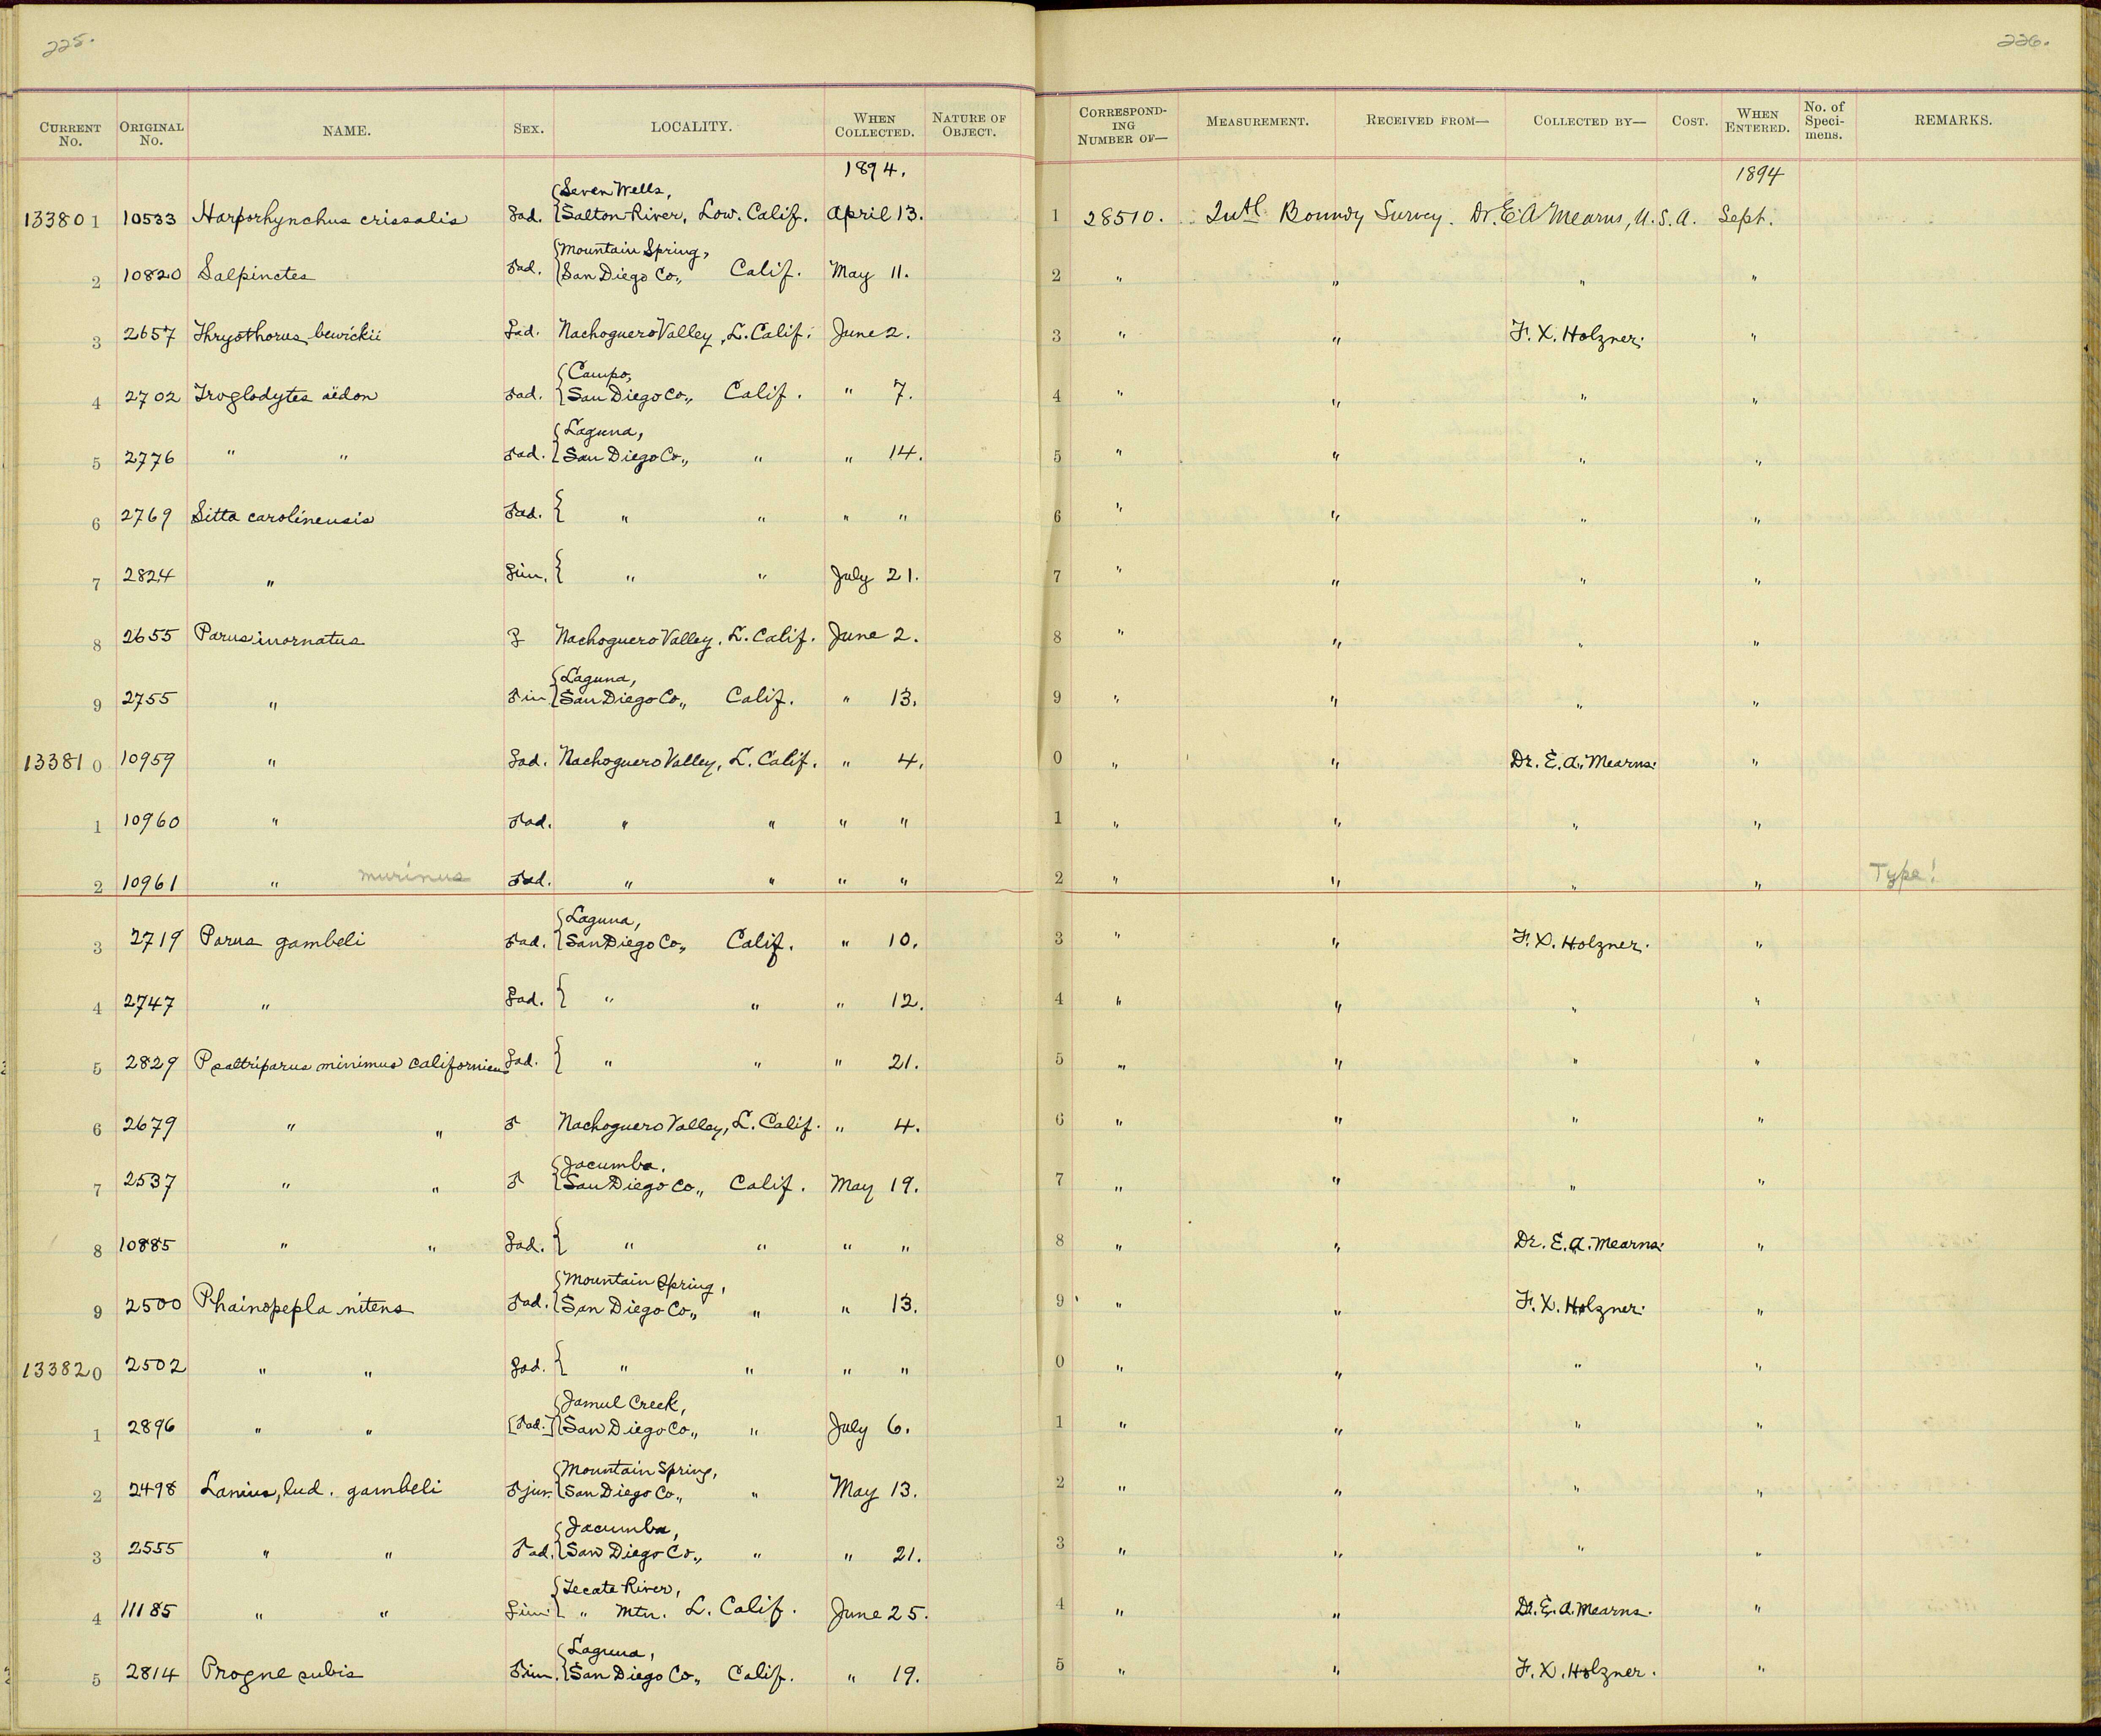 225.
226.
CURRENT No. ORIGINAL No. NAME. SEX. LOCALITY. WHEN COLLECTED. NATURE OF OBJECT. CORRESPONDING NUMBER OF— MEASUREMENT. RECEIVED FROM— COLLECTED BY— COST. WHEN ENTERED. No. of Specimens. REMARKS.
1894. 1894
Seven Wells,
133801 10533 Harporhynchus crissalis ad. Salton River, Low. Calif. April 13. 1 28510. Intl Boundy Survey. Dr. E A Mearns, U.S.A. Sept.
Mountain Spring,
2 10820 Salpinctes ad. San Diego Co., Calif. May 11. 2 " " " "
3 2657 Thryothorus bewickii ad. Nachoguero Valley, L. Calif. June 2. 3 " " F. X. Holzner. "
Campo,
4 2702 Troglodytes aëdon ad. San Diego Co., Calif. " 7. 4 " " " "
Laguna,
5 2776 " " ad. San Diego Co., " " 14. 5 " " " "
6 2769 Sitta carolinensis ad. " " " " 6 " " " "
7 2824 " im. " " July 21. 7 " " " "
8 2655 Parus inornatus Nachoguero Valley, L. Calif. June 2. 8 " " " "
Laguna,
9 2755 " im San Diego Co., Calif. " 13. 9 " " " "
133810 10959 " ad. Nachoguero Valley, L. Calif. " 4. 0 " " Dr. E. A. Mearns. "
1 10960 " ad. " " " " 1 " " " "
2 10961 " murinus ad. " " " " 2 " " " " Type!
Laguna,
3 2719 Parus gambeli ad. San Diego Co., Calif. " 10. 3 " " F. X. Holzner. "
4 2747 " ad. " " " 12. 4 " " " "
5 2829 Psaltriparus minimus californicus ad. " " " 21. 5 " " " "
6 2679 " " Nachoguero Valley, L. Calif. " 4. 6 " " " "
Jacumba,
7 2537 " " San Diego Co., Calif. May 19. 7 " " " "
8 10885 " " ad. " " " " 8 " " Dr. E. A. Mearns. "
Mountain Spring,
9 2500 Phainopepla nitens ad. San Diego Co., " " 13. 9 " " F. X. Holzner. "
133820 2502 " " ad. " " " " 0 " " " "
Jamul Creek,
1 2896 " " [ad.] San Diego Co., " July 6. 1 " " " "
Mountain Spring,
2 2498 Lanius, lud. gambeli juv. San Diego Co., " May 13. 2 " " " "
Jacumba,
3 2555 " " ad. San Diego Co., " " 21. 3 " " " "
Tecate River,
4 11185 " " im. " Mtn. L. Calif. June 25. 4 " " Dr. E. A. Mearns. "
Laguna,
5 2814 Progne subis im. San Diego Co., Calif. " 19. 5 " " F. X. Holzner. "